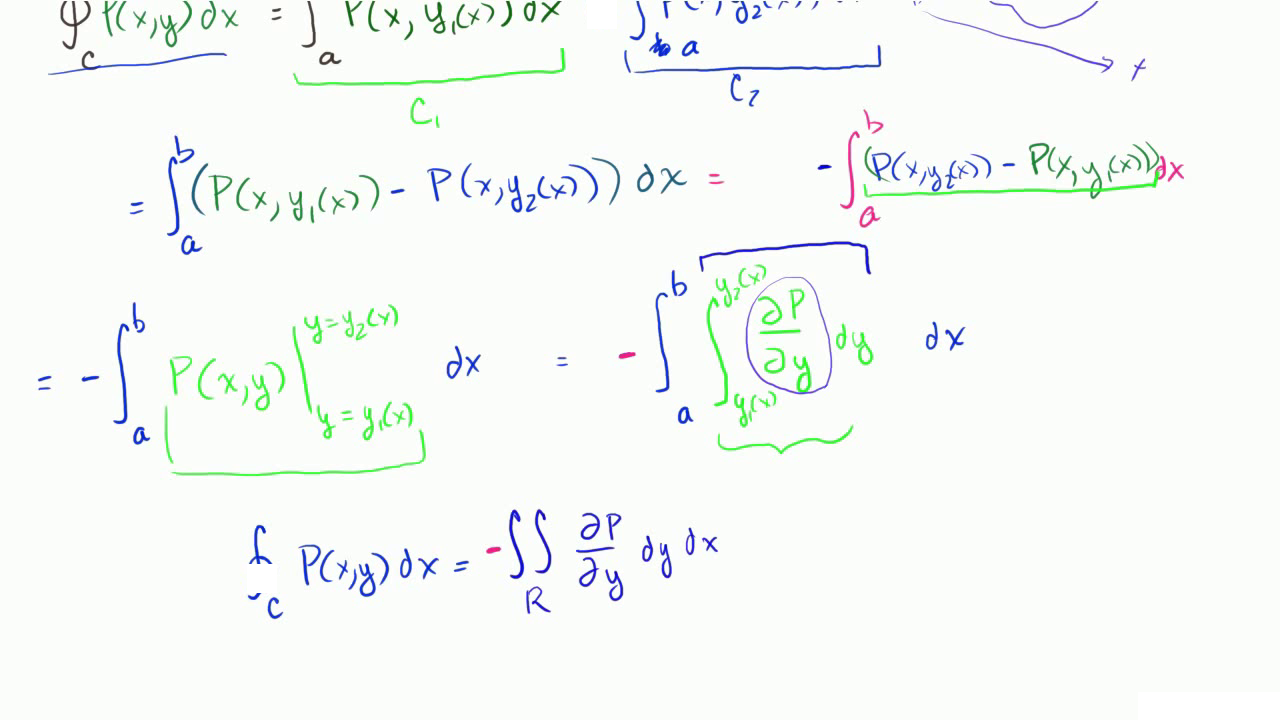 ∮_C P(x,y) dx = ∫_a P(x, y₁(x)) dx ∫_a
C₁ C₂
= ∫_a^b (P(x, y₁(x)) - P(x, y₂(x))) dx = - ∫_a^b (P(x,y₂(x)) - P(x,y₁(x))) dx
= - ∫_a^b P(x,y) |_{y=y₁(x)}^{y=y₂(x)} dx = - ∫_a^b ∫_{y₁(x)}^{y₂(x)} ∂P/∂y dy dx
∮_C P(x,y) dx = - ∬_R ∂P/∂y dy dx